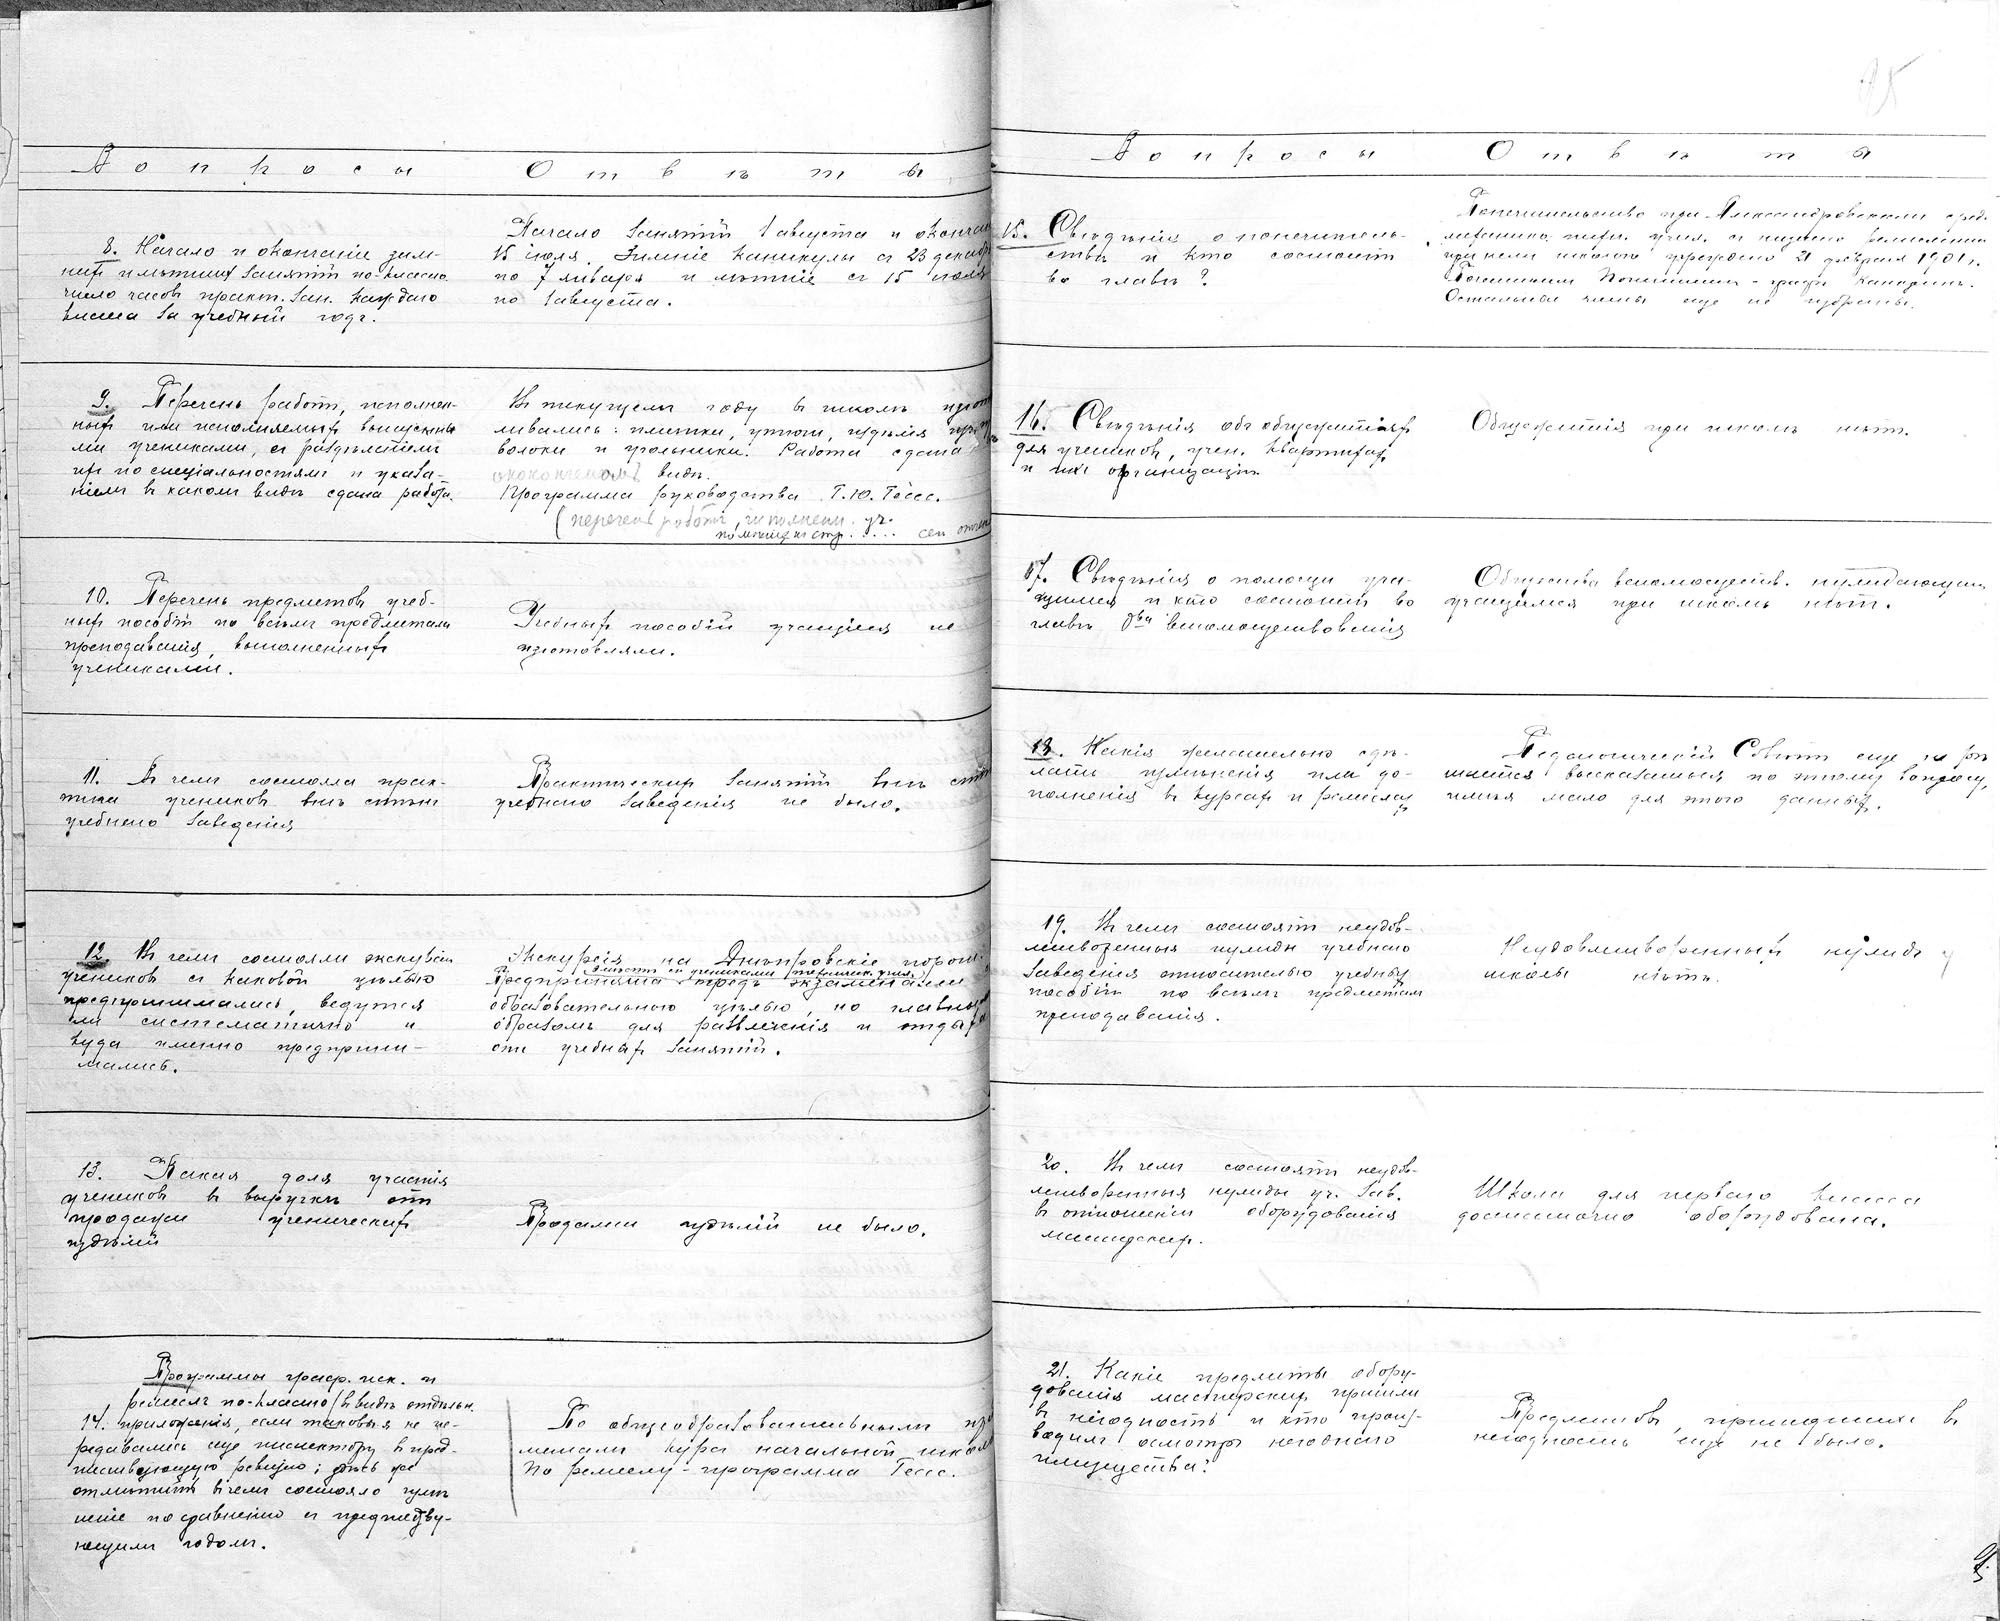 Вопросы
Отвѣты
8. Начало и окончаніе зим-
нихъ и лѣтнихъ занятій по классно
число часовъ практ. зан. каждаго
класса за учебный годъ.
Начало занятій 1 августа и оконча
15 іюля. Зимніе каникулы съ 23 декабр
по 7 января и лѣтніе съ 15 іюля
по 1 августа.
9. Перечень работъ, исполнен-
ныхъ или исполняемыхъ выпускны
ми учениками, съ раздѣленіемъ
ихъ по спеціальностямъ и указа-
ніемъ въ какомъ видѣ сдана работа.
Въ текущемъ году въ школѣ изгот
вливались: плитки, утюги, издѣлія
волоки и угольники. Работа сдана
видѣ.
Программа руководства Г.Ю. Гессе.
(перечень работъ, исполнен. уч.
помѣщ. на стр. ....
10. Перечень предметовъ учеб-
ныхъ пособій по всѣмъ предметамъ
преподаванія, выполненныхъ
учениками.
Учебныхъ пособій учащіеся не
изготовляли.
11. Въ чемъ состояла прак-
тика учениковъ внѣ стѣнъ
учебнаго заведенія
Практическихъ занятій внѣ стѣн
учебнаго заведенія не было.
12. Въ чемъ состояли экскурсіи
учениковъ съ каковой цѣлью
предпринимались, ведутся
ли систематично и
куда именно предприни-
мались.
Экскурсія на Днѣпровскіе пороги
вмѣстѣ съ учениками техническ. учил.
предпринята передъ экзаменами
образовательною цѣлью, но главны
образомъ для развлеченія и отдыха
отъ учебныхъ занятій.
13. Какая доля участія
учениковъ въ выручкѣ отъ
продажи ученическихъ
издѣлій
Продажи издѣлій не было.
Программы граф. иск. и
ремеслъ по-классно /въ видѣ отдѣльн.
14. приложенія, если таковыя не пе-
редавались еще инспектору въ пред-
шествующую ревизію; здѣсь же
отмѣтить въ чемъ состояло измѣ
неніе по сравненію съ предшеству-
ющимъ годомъ.
По общеобразовательнымъ пре
метамъ курсъ начальной школы
По ремеслу - программа Гессе.
Вопросы
Отвѣты
15. Свѣдѣнія о попечитель-
ствѣ и кто состоитъ
во главѣ?
Попечительство при Александровскомъ сред.
механико. техн. учил. съ низшею ремесленн
при немъ школою учреждено 21 февраля 1901 г.
Почетнымъ Попечителемъ - графъ Канкринъ.
Остальные члены еще не избраны.
16. Свѣдѣнія объ общежитіяхъ
для учениковъ, учен. квартирахъ
и ихъ организаціи.
Общежитія при школѣ нѣтъ.
17. Свѣдѣнія о помощи уча-
щимся и кто состоитъ во
главѣ О-ва вспомоществованія
Общества вспомоществ. нуждающимся
учащимся при школѣ нѣтъ.
18. Какія желательно сдѣ-
лать измѣненія или до-
полненія въ курсахъ и ремеслах
ъ
Педагогическій Совѣтъ еще не рѣ
шается высказаться по этому вопросу,
имѣя мало для этого данныхъ.
19. Въ чемъ состоятъ неудов-
летворенныя нужды учебнаго
заведенія относительно учебныхъ
пособій по всѣмъ предметам
преподаванія.
Неудовлетворенныхъ нуждъ у
школы нѣтъ.
20. Въ чемъ состоятъ неудов-
летворенныя нужды уч. зав.
въ отношеніи оборудованія
мастерскихъ.
Школа для перваго класса
достаточно оборудована.
21. Какіе предметы обору-
дованія мастерскихъ пришли
въ негодность и кто произ-
водилъ осмотръ негоднаго
имущества?
Предметовъ, пришедшихъ въ
негодность еще не было.